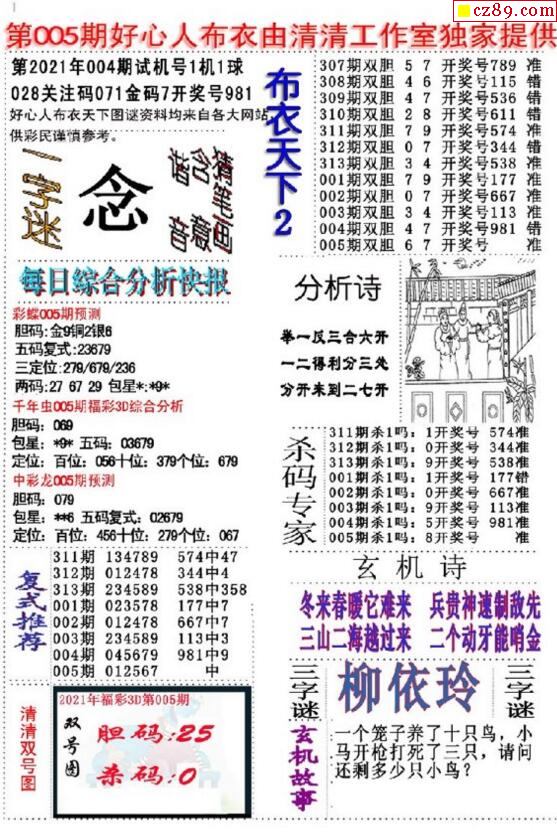 cz89.com
第005期好心人布衣由清清工作室独家提供
第2021年004期试机号1机1球
028关注码071金码7开奖号981
好心人布衣天下图谜资料均来自各大网站
供彩民谨慎参考。
一字迷
念
猜笔画
含意
猜音
每日綜合分析快报
彩蝶005期预测
胆码:金9铜2银6
五码复式:23679
三定位:279/679/236
两码:27 67 29 包星*:*9*
千年虫005期福彩3D综合分析
胆码: 069
包星: *9* 五码: 03679
定位: 百位: 056十位: 379个位: 679
中彩龙005期预测
胆码: 079
包星: **6 五码复式: 02679
定位: 百位: 456十位: 279个位: 067
复式推荐
311期 134789 574中47
312期 012478 344中4
313期 234589 538中358
001期 023578 177中7
002期 012478 667中7
003期 234589 113中3
004期 045679 981中9
005期 012567 中
清清双号图
2021年福彩3D第005期
双号图
胆码:25
杀码:0
布衣天下2
307期双胆 5 7 开奖号789 准
308期双胆 4 6 开奖号115 错
309期双胆 4 7 开奖号536 错
310期双胆 2 8 开奖号611 错
311期双胆 7 9 开奖号574 准
312期双胆 0 7 开奖号344 错
313期双胆 3 4 开奖号538 准
001期双胆 7 9 开奖号177 准
002期双胆 0 7 开奖号667 准
003期双胆 3 4 开奖号113 准
004期双胆 4 7 开奖号981 错
005期双胆 6 7 开奖号 准
分析诗
举一反三合六开
一二得利分三处
分开来到二七开
杀码专家
311期杀1吗: 1开奖号 574准
312期杀1吗: 0开奖号 344准
313期杀1吗: 9开奖号 538准
001期杀1吗: 1开奖号 177错
002期杀1吗: 0开奖号 667准
003期杀1吗: 9开奖号 113准
004期杀1吗: 5开奖号 981准
005期杀1吗: 8开奖号 准
玄机诗
冬来春暖它难来 兵贵神速制敌先
三山二海越过来 二个动牙能哨金
三字谜
柳依玲
三字谜
玄机故事
一个笼子养了十只鸟，小
马开枪打死了三只，请问
还剩多少只小鸟？